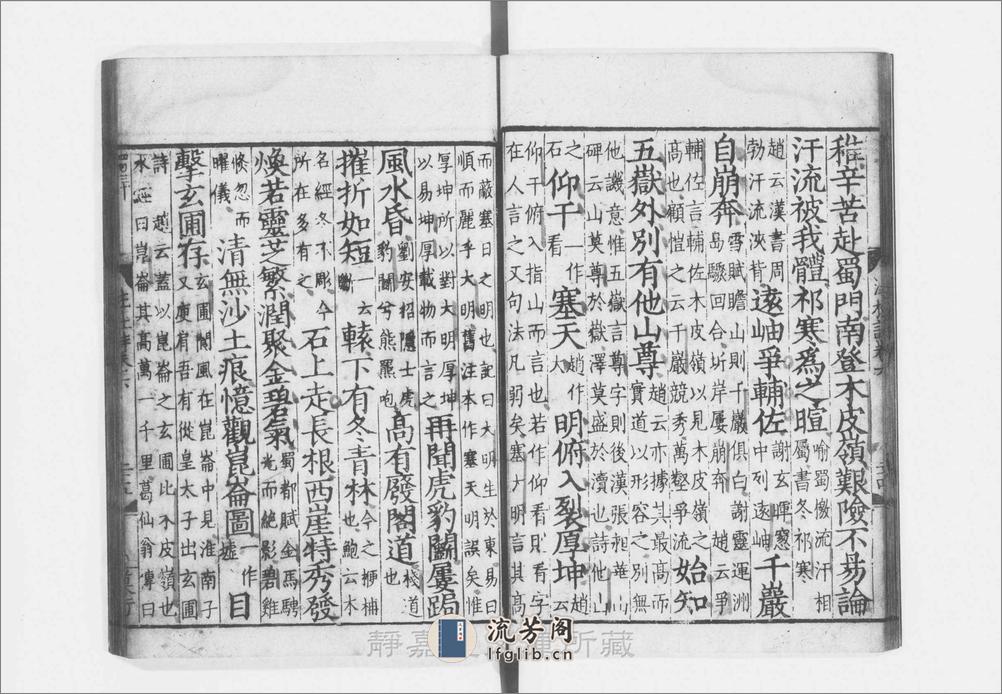 稚辛苦赴蜀門南登木皮嶺艱險不易論
汗流被我體祁寒爲之暄喻蜀檄流汗相屬書冬祁寒
趙云漢書周勃汗流浹背遠岫爭輔佐中謝玄暉窻中列遠岫千巖
自崩奔雪賦瞻山則千巖俱白謝靈運洲島驟回合圻岸屢崩奔趙云爭
輔佐言輔佐木皮嶺以見木皮嶺之高也顧愷之云千巖競秀萬壑爭流始知
五嶽外別有他山尊趙云亦據其最高而實道以形容之別無
他譏意惟五嶽言尊字則後漢張昶華山碑云山莫尊於嶽澤莫盛於瀆也詩他山
之石仰干一作看塞天趙作大明俯入裂厚坤趙
仰干俯入指山而言也若作仰看則看字在人言之又句法凡弱矣塞大明言其高
而蔽塞日之明也記曰大明生於東易曰順而麗乎大明舊注本作塞天明誤矣惟
厚坤所以對大明厚坤以易坤厚載物而言之再聞虎豹鬬屢跼
風水昏劉安招隱士虎豹鬬兮熊羆咆高有廢閣道棧道也
摧折如短一云斷轅下有冬青林今之楩楠也鮑云木
名經冬不彫今所在多有之石上走長根西崖特秀發
煥若靈芝繁潤聚金碧氣蜀都賦金馬騁光而絶影碧雞
倏忽而曜儀清無沙土痕憶觀崑崙圖一作墟目
擊玄圃存玄圃閬風在崑崙中見淮南子又庾肩吾有從皇太子出玄圃
詩趙云蓋以崑崙之玄圃比木皮嶺也水經曰崑崙其高萬一千里葛仙翁傳曰
流芳阁
lfglib.cn